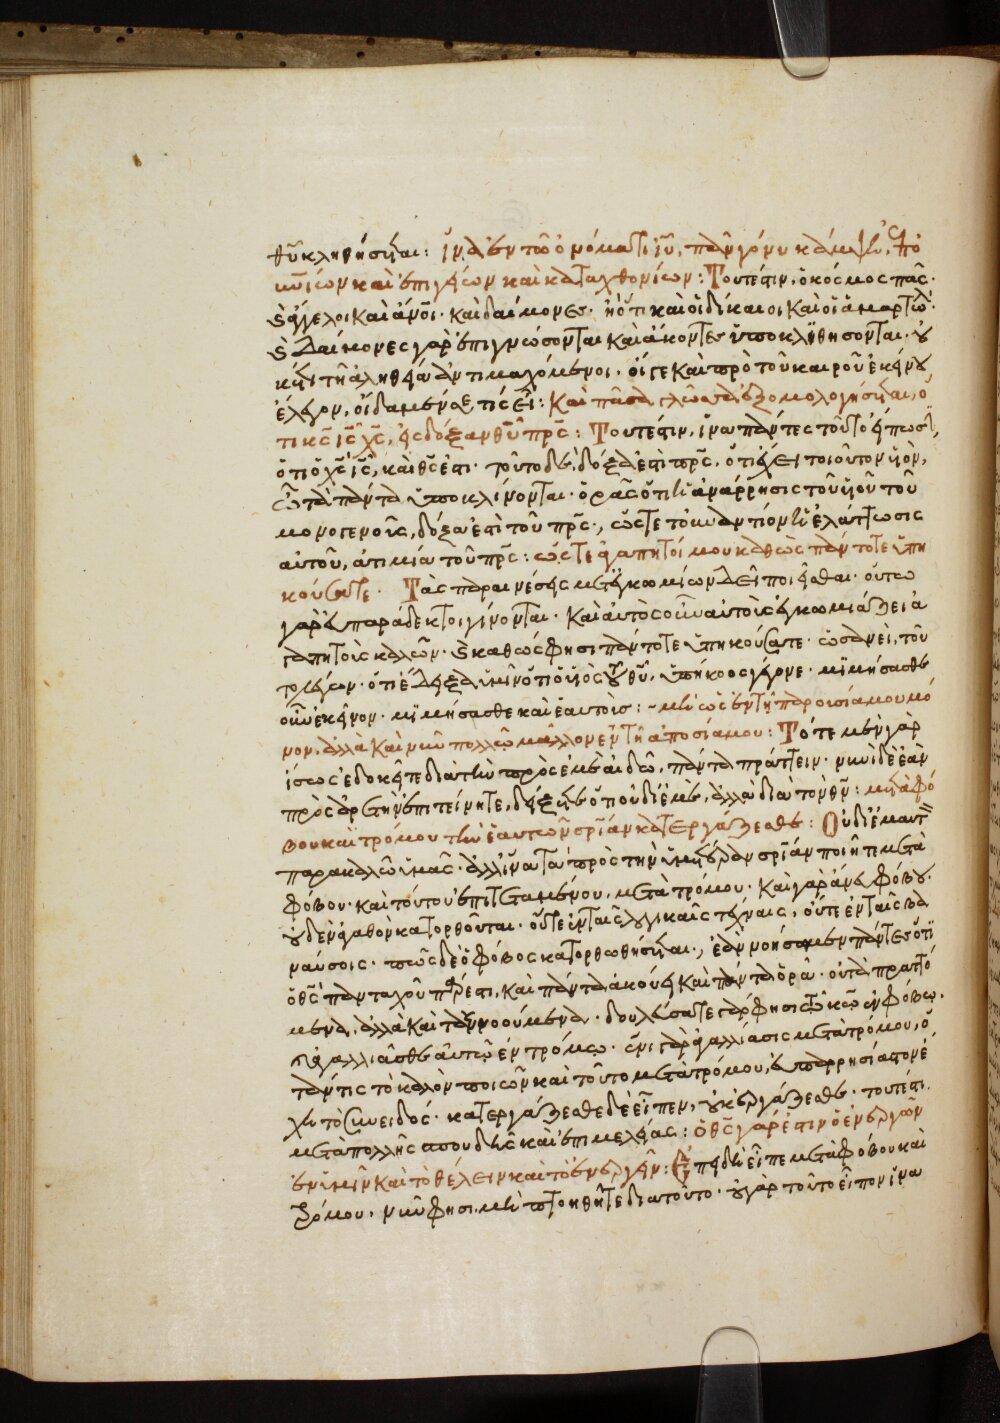 θῦ κληθήσεται: ἵνα ἐν τῶ ὀνόματι ἰῦ, πᾶν γόνυ κάμψει, ἐπου
νίων καὶ ἐπιγείων καὶ καταχθονίων: Τουτέστιν, ὁ κόσμος πᾶς.
καὶ ἄγγελοι καὶ ἄνοι. καὶ δαίμονες. ἢ ὅτι καὶ οἱ δίκαιοι καὶ οἱ ἁμαρτωλοί.
καὶ δαίμονες γὰρ ἐπιγνώσονται καὶ ἄκοντες ὑποκλιθήσονται. οὐ
κέτι τῆ ἀληθεία ἀντιμαχόμενοι. οἵ γε καὶ πρὸ τοῦ καιροῦ ἐκείνου
ἔλεγον, οἴδαμέν σε, τίς εἶ: Καὶ πᾶσα γλῶσσα ἐξομολογήσεται, ὅ
τι κς ις χς, εἰς δόξαν θῦ πρς: Τουτέστιν, ἵνα πάντες τοῦτο εἴπωσιν,
ὅτι ὁ χς ις, καὶ θς ἐστι. τοῦτο δὲ, δόξα ἐστὶ πρς, ὅτι ἔχει τοιοῦτον υἱὸν,
ὧ τὰ πάντα ὑποκλίνονται. ὁρᾶς ὅτι ἡ ἀνάρρησις τοῦ υἱοῦ τοῦ
μονογενοῦς, δόξα ἐστὶ τοῦ πρς, ὥστε τοὐναντίον ἡ ἐλάττωσις
αὐτοῦ, ἀτιμία τοῦ πρς: ὥστε ἀγαπητοί μου καθὼς πάντοτε ὑπη
κούσατε. Τὰς παραινέσεις μετ' ἐγκωμίων δεῖ ποιεῖσθαι. οὕτω
γὰρ εὐπαράδεκτοι γίνονται. Καὶ αὐτὸς οὖν αὐτοὺς ἐγκωμιάζει ἀ
γαπητοὺς καλῶν. καὶ καθώς φησι πάντοτε ὑπηκούσατε. ὡσανεὶ, τοῦτο
λέγων. ὅτι ἔδειξα ὑμῖν ὅτι ὁ υἱὸς τοῦ θῦ, ὑπήκοος γέγονε. μιμήσασθε
οὖν ἐκεῖνον. μιμήσασθε καὶ ἑαυτοὺς: – μὴ ὡς ἐν τῆ παρουσία μου μό
νον. ἀλλὰ καὶ νῦν πολλῶ μᾶλλον ἐν τῆ ἀπουσία μου: Τότε μὲν γὰρ
ἴσως ἐδοκεῖτε διὰ τὴν πρὸς ἐμὲ αἰδῶ, πάντα πράττειν. νυνὶ δὲ ἐὰν
πρὸς ἀρετὴν ἐπιτείνητε, δείξετε ὅτι οὐ δι' ἐμὲ, ἀλλὰ διὰ τὸν θν: μετὰ φό
βου καὶ τρόμου τὴν ἑαυτῶν σρίαν κατεργάζεσθε: Οὐ δι' ἐμαυτὸν
παρακαλῶ ὑμᾶς. ἀλλ' ἵνα τὰ πρὸς τὴν ὑμετέραν σρίαν ποιῆτε μετὰ
φόβου. καὶ τούτου ἐπιτεταμένου, μετὰ τρόμου. Καὶ γὰρ ἄνευ φόβου.
οὐδὲν ἀγαθὸν κατορθοῦται. οὔτε ἐν ταῖς λογικαῖς τέχναις, οὔτε ἐν ταῖς βα
ναύσοις. πῶς δὲ ὁ φόβος κατορθωθήσεται, ἐὰν νοήσωμεν πάντες ὅτι
ὁ θς πανταχοῦ πάρεστι, καὶ πάντα ἀκούει καὶ πάντα ὁρᾶ. οὐ τὰ πραττό
μενα, ἀλλὰ καὶ τὰ ἐννοούμενα. δουλεύσατε γάρ φησι τῶ κω ἐν φόβω.
καὶ ἀγαλλιᾶσθε αὐτῶ ἐν τρόμω. ἔνι γὰρ ἀγαλλίασις μετὰ τρόμου, ὅ
ταν τις τὸ καλὸν ποιῶν καὶ τοῦτο μετὰ τρόμου, εὐπαρρησίαστον ἔ
χη τὸ συνειδός. κατεργάζεσθε δὲ εἶπεν, οὐκ ἐργάζεσθε. τουτέστι
μετὰ πολλῆς σπουδῆς καὶ ἐπιμελείας: ὁ θς γάρ ἐστιν ὁ ἐνεργῶν
ἐν ὑμῖν καὶ τὸ θέλειν καὶ τὸ ἐνεργεῖν: Ἐπειδὴ εἶπε μετὰ φόβου καὶ
τρόμου, νῦν φησι. μὴ πτοηθῆτε διὰ τοῦτο. οὐ γὰρ τοῦτο εἶπον ἵνα